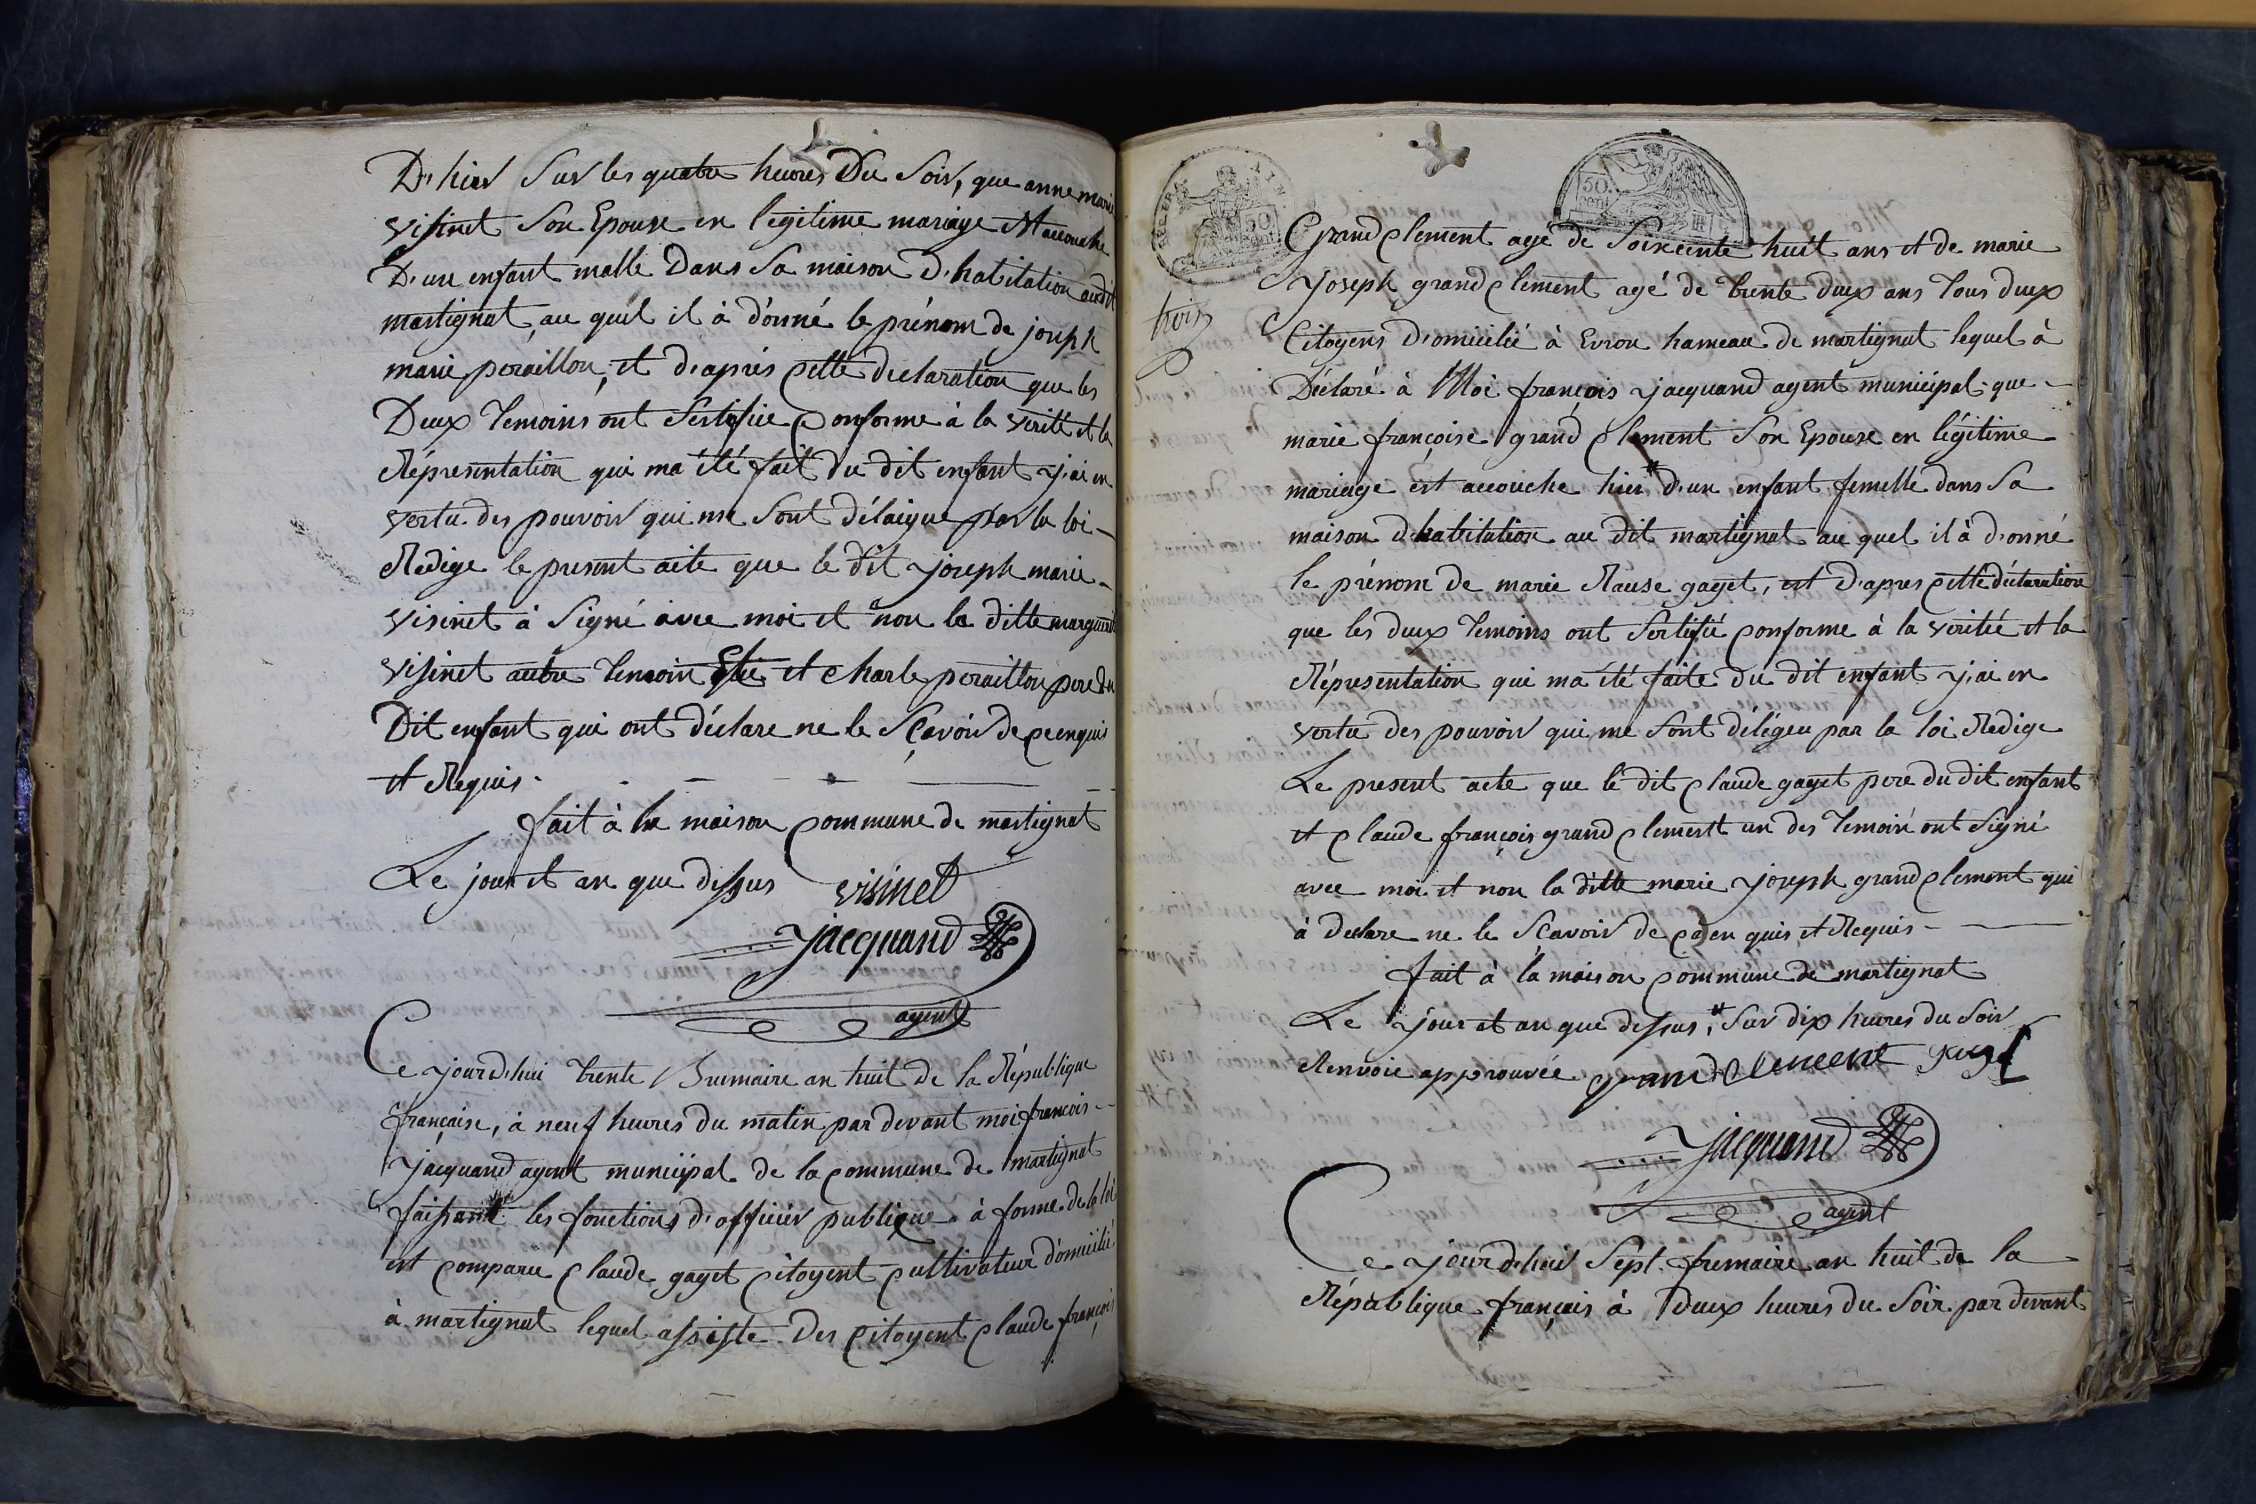 D'hier Sur les quatre heures Du Soir, que anne marie
visinet Son Epouse en legitime mariage Et accouche
D'un enfant malle Dans Sa maison D'habitation audit
martignat au quel il à d'onné le prénom de joseph
marie peraillon, et d'après cette déclaration que les
Deux Temoins ont Sertifiée Conforme à la verité et la
Réprésentation qui ma été fait Du dit enfant j'ai en
vertu des pouvoir qui me Sont délaigue par la loi
Redige le present acte que le dit joseph marie
visinet à Signé avec moi et non la ditte marguerite
visinet autre Temoin et Charle peraillon pere du
Dit enfant qui ont déclare ne le Sçavoir de ce enquis
et Requis.
fait à la maison Commune de martignat
Le jour et an que dessus visinet
jacquand
agent
Ce jourd'hui trente Brumaire an huit de la République
française, à neuf heures du matin par devant moi françois
jacquand agent municipal de la Commune de martignat
faisant les fonctions d'officier publique à forme de la loi
est Comparu Claude gayet Citoyent Cultivateur domicilié
à martignat lequel assiste Des Citoyent Claude françois
50 cent
trois
Grand Clement agé de Soixente huit ans et de marie
Joseph grand Clement agé de trente deux ans Tous deux
Citoyens D'omicilié à Evron hameau de martignat lequel à
Déclaré à Moi françois jacquand agent municipal que
marie françoise grand Clement Son Epouse en légitime
mariage est accouche hier # d'un enfant femelle dans Sa
maison d'habitation au dit martignat au quel il à d'onné
le prénom de marie Rause gayet, est d'apres cette déclaration
que les deux Temoins ont Sertifié Conforme à la veritée et la
Réprésentation qui ma été faite du dit enfant j'ai en
vertu des pouvoir qui me Sont délégeu par la loi Redige
Le present acte que le dit Claude gayet pere du dit enfant
et Claude françois grand Clement un des Temoins ont Signé
avec moi et non la ditte marie joseph grand Clement qui
à declare ne le Scavoir de ce en quis et Requis
fait à la maison Commune de martignat
Le jour et an que dessus, # Sur dix heures du Soir
Renvoie approuvée grand Clement gayet
jacquand
agent
Ce jourd'hui Sept frimaire an huit de la
République français à deux heures du Soir par devant